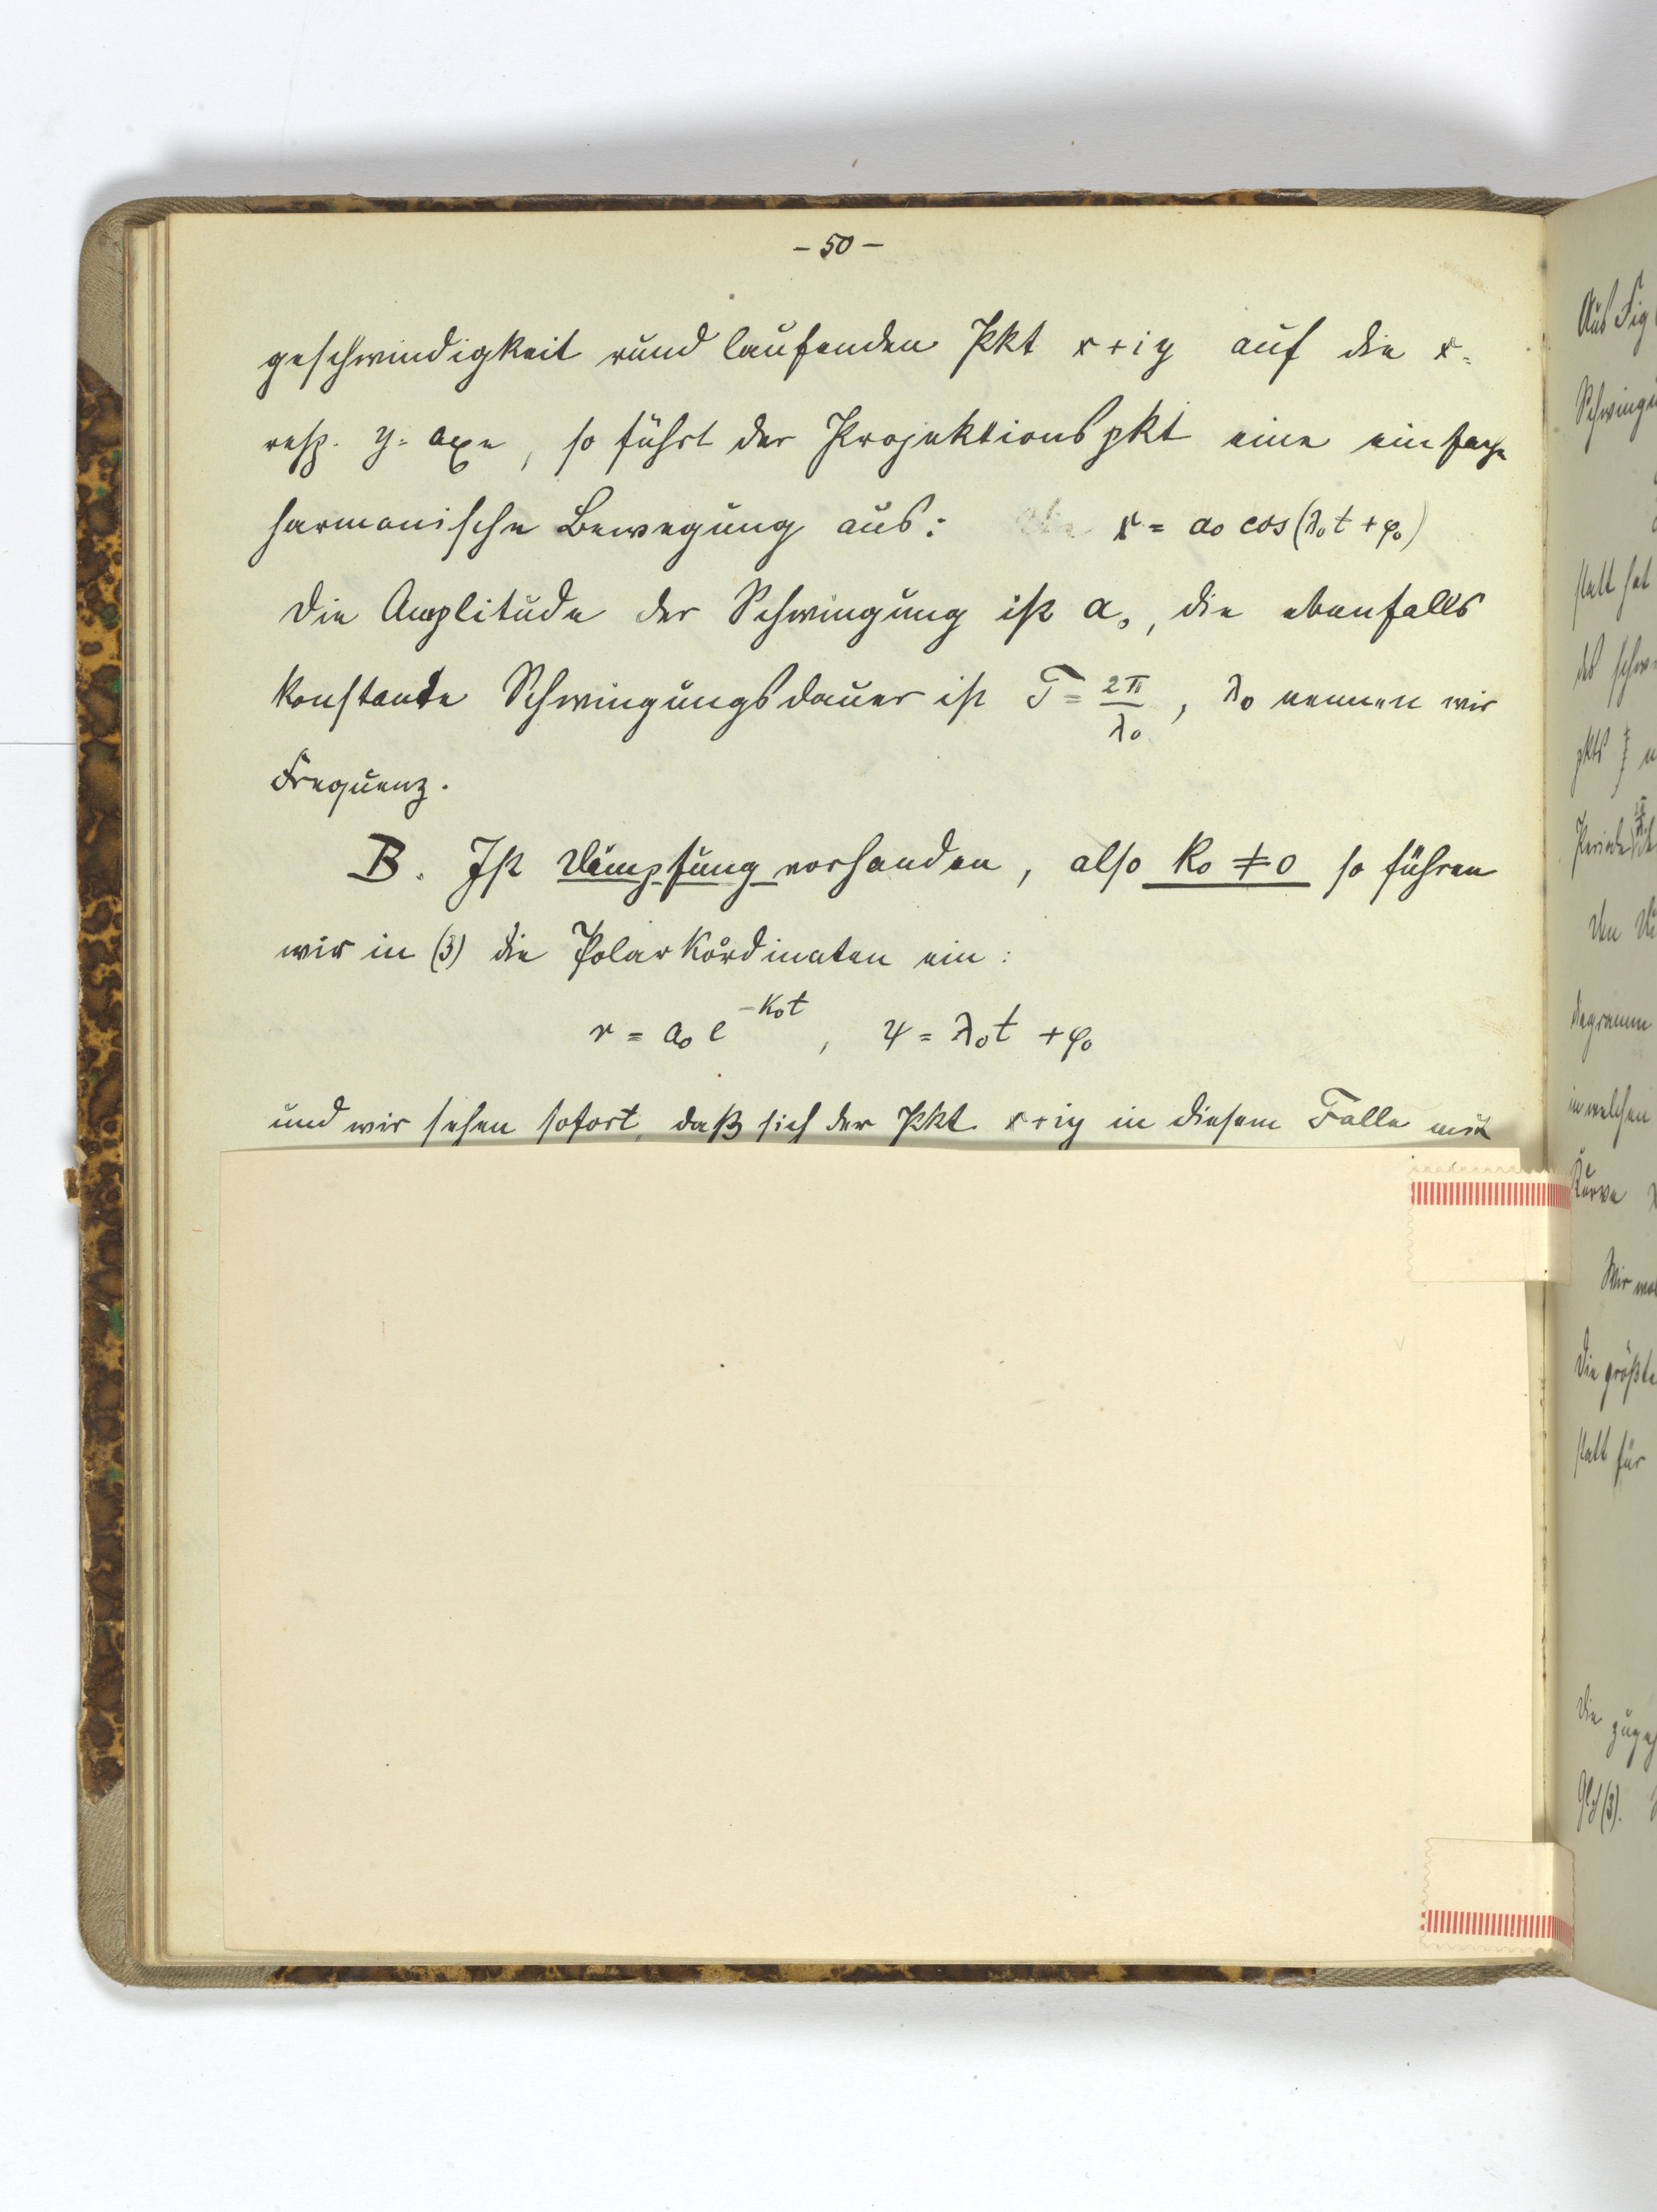 - 50 -
geschwindigkeit rund laufenden Pkt x+iy auf die x=
resp. y= axe, so führt der Projektionspkt eine einfache
harmonische Bewegung aus: x = a₀ cos(λ₀t + φ₀)
Die Amplitude der Schwingung ist a₀, die ebenfalls
konstante Schwingungsdauer ist T = 2π/λ₀, λ₀ nennen wir
Frequenz.
B. Ist Dämpfung vorhanden, also k₀ ≠ 0 so führen
wir in (3) die Polarkoordinaten ein:
r = a₀ e^(-k₀t), ψ = λ₀t + φ₀
und wir sehen sofort, daß sich der Pkt. x+iy in diesem Falle mit
Aus Fig
Schwingu
statt hat
des schw
pkts
Periode
Den
diagramm
in welchen
Kurve
Wir
Die größte
statt für
Die zugeh
(3).